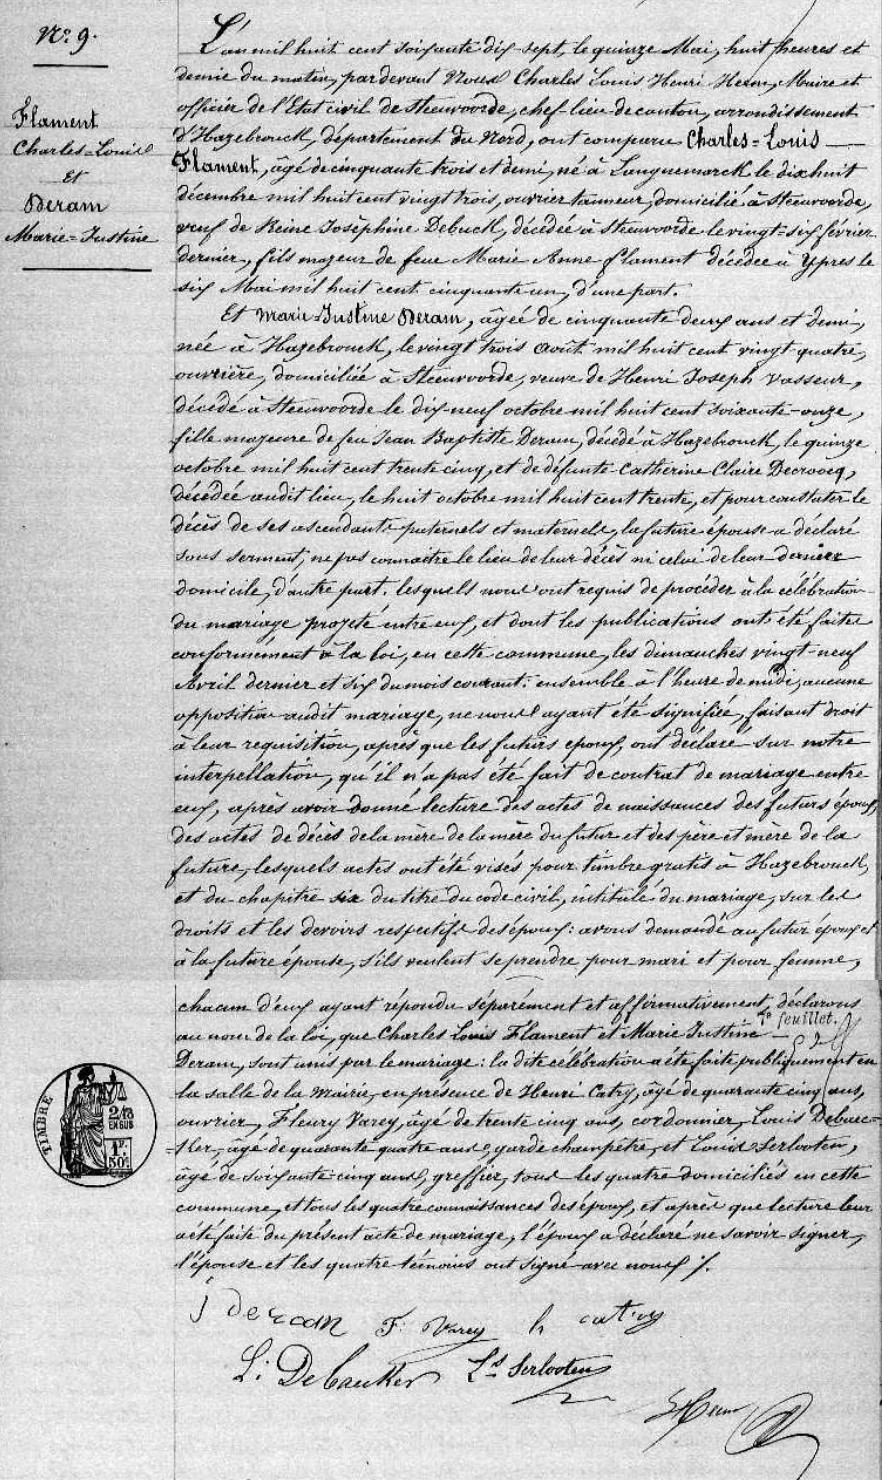 N.º 9.
Flament
Charles=Louis
et
Deram
Marie=Justine
L'an mil huit cent soixante dix-sept, le quinze Mai, huit heures et
demie du matin, pardevant Nous Charles Louis Henri Hem, Maire et
officier de l'Etat civil de Steenvoorde, chef lieu de canton, arrondissement
d'Hazebrouck, département du Nord, ont comparu Charles=Louis
Flament, âgé de cinquante trois et demi, né à Langnemarck le dix huit
décembre mil huit cent vingt trois, ouvrier tanneur, domicilié à Steenvoorde,
veuf de Reine Josèphine Debuck, décédée à Steenvoorde le vingt=six février
dernier, fils majeur de feue Marie Anne flament décédée à Ypres le
six Mai mil huit cent cinquante un, d'une part.
Et Marie-Justine Deram, âgée de cinquante deux ans et demi,
née à Hazebrouck, le vingt trois Août mil huit cent vingt-quatre,
ouvrière, domiciliée à Steenvoorde, veuve de Henri Joseph Vasseur,
décédé à Steenvoorde le dix-neuf octobre mil huit cent soixante-onze,
fille majeure de feu Jean Baptiste Deram, décédé à Hazebrouck, le quinze
octobre mil huit cent trente cinq, et de défunte Catherine Claire Decroocq,
décédée audit lieu, le huit octobre mil huit cent trente, et pour constater le
décès de ses ascendants paternels et maternels, la future épouse a déclaré
sous serment, ne pas connaitre le lieu de leur décès ni celui de leur dernier
domicile, d'autre part. lesquels nous ont requis de procéder à la célébration
du mariage projeté entre eux, et dont les publications ont été faites
conformément à la loi, en cette commune, les dimanches vingt-neuf
Avril dernier et six du mois courant: ensemble à l'heure de midi, aucune
opposition audit mariage, ne nous ayant été signifiée, faisant droit
à leur requisition, après que les futurs époux, ont déclaré sur notre
interpellation, qu'il n'a pas été fait de contrat de mariage entre
eux, après avoir donné lecture des actes de naissances des futurs époux,
des actes de décès de la mère de la mère du futur et des père et mère de la
future, lesquels actes ont été visés pour timbre gratis à Hazebrouck,
et du chapitre six du titre du code civil, intitulé du mariage, sur les
droits et les devoirs respectifs des époux: avons demandé au futur époux et
à la future épouse, s'ils veulent se prendre pour mari et pour femme,
chacun d'eux ayant répondu séparément et affirmativement, déclarons
7.e feuillet.
au nom de la loi, que Charles Louis Flament et Marie Justine
Deram, sont unis par le mariage: la dite célébration a été faite publiquement en
la salle de la Mairie, en présence de Henri Catry, âgé de quarante cinq ans,
ouvrier, Fleury Varey, âgé de trente cinq ans, cordonnier, Louis Debaec=
=ker, âgé de quarante quatre ans, garde champêtre, et Louis Serlooten,
âgé de soixante-cinq ans, greffier, tous les quatre domiciliés en cette
commune, et tous les quatre connaissances des époux, et après que lecture leur
a été faite du présent acte de mariage, l'époux a déclaré ne savoir signer,
l'épouse et les quatre témoins ont signé avec nous ./.
TIMBRE
2/10
EN SUS
1F.
50c.
j deram F. Varey h catry
L: DeBaecker Ls Serlooten
Hem